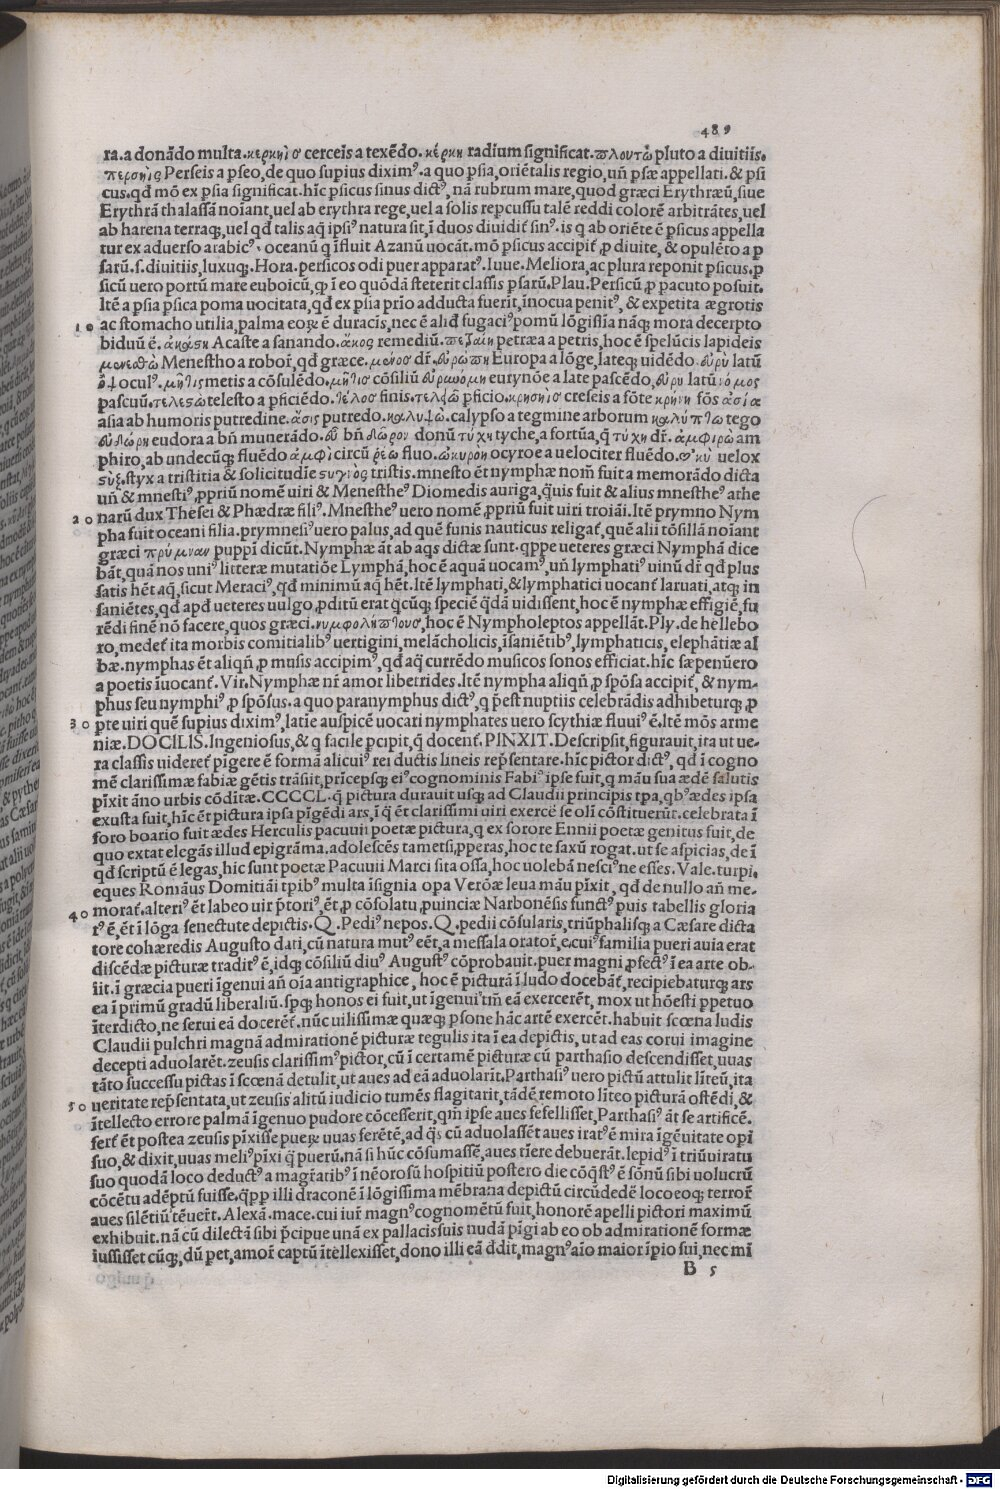 489
ra.a donãdo multa.κερκηὶσ cerceis a texẽdo.κέρκη radium significat.πλουτὼ pluto a diuitiis.
περσηὶς Perseis a pseo,de quo supius diximꝰ.a quo psia,oriẽtalis regio,uñ psæ appellati.& psi
cus.qd̃ mõ ex psia significat.hĩc psicus sinus dictꝰ, nã rubrum mare,quod græci Erythræũ,siue
Erythrã thalassã noĩant,uel ab erythra rege,uel a solis repcussu talẽ reddi colorẽ arbitrãtes,uel
ab harena terraq;,uel qd̃ talis aq̃ ipsiꝰ natura sit,ĩ duos diuidit̃ sinꝰ.is q ab oriẽte ẽ psicus appella
tur ex aduerso arabicꝰ.oceanũ q ĩfluit Azanũ uocãt.mõ psicus accipit̃,p diuite,& opulẽto a p
sarũ.s.diuitiis,luxuq;.Hora.persicos odi puer apparatꝰ.Iuue.Meliora,ac plura reponit psicus.p
sicũ uero portũ mare euboicũ,qp ĩ eo quõdã steterit classis psarũ.Plau.Persicũ p pacuto posuit.
Itẽ a psia psica poma uocitata,qd̃ ex psia prĩo adducta fuerĩt,ĩnocua penitꝰ,& expetita ægrotis
10 ac stomacho utilia,palma eoꝝ ẽ duracis,nec ẽ aliđ fugaciꝰ pomũ lõgissĩa nãq; mora decerpto
biduũ ẽ.ἀκάςη Acaste a sanando.ἀκος remediũ.πετραίη petræa a petris,hoc ẽ spelũcis lapideis
μενεσθὼ Menestho a robor̃,qd̃ græce.μενοσ dr̃.ἐυρώπη Europa a lõge,lateq; uidẽdo.ἐυρὺ latũ
ὄψ oculꝰ.μῆτις metis a cõsulẽdo.μῆτισ cõsiliũ ἐυρυνόμη eurynõe a late pascẽdo,ἐυρυ latũ νόμος
pascuũ.τελεςὼ telesto a pficiẽdo.τέλοσ finis.τελέω pficio.κρησηὶσ creseis a fõte κρήνη fõs ἀσία
asia ab humoris putredine.ἄσις putredo.καλυψὼ.calypso a tegmine arborum καλύπτω tego
ἐυδώρη eudora a bñ munerãdo.ἐῦ bñ δῶρον donũ τύχη tyche,a fortũa,q̃ τύχη dr̃.ἀμφιρὼ am
phiro,ab undecũq; fluẽdo ἀμφὶ circũ ῥέω fluo.ὠκυρόη ocyroe a uelociter fluẽdo.ὠκὺ uelox
ςύξ.styx a tristitia & solicitudĩe ςυγνὸς tristis.mnesto ẽt nymphæ nom̃ fuit a memorãdo dicta
uñ & mnestiꝰ,ppriũ nomẽ uiri & Menestheꝰ Diomedis auriga,q̃uis fuit & alius mnestheꝰ athe
20 narũ dux Thesei & Phædræ filiꝰ.Mnestheꝰ uero nomẽ,ppriũ fuit uiri troiãi.Itẽ prymno Nym
pha fuit oceani filia.prymnesiꝰ uero palus,ad quẽ funis nauticus religat̃,quẽ alii tõsillã noĩant
græci πρύμναν puppĩ dicũt.Nymphæ ãt ab aqs dictæ sunt.qppe ueteres græci Nymphã dice
bãt,quã nos uniꝰ litteræ mutatiõe Lymphã,hoc ẽ aquã uocamꝰ,uñ lymphatiꝰ uinũ dr̃ qd̃ plus
satis hẽt aq̃,sicut Meraciꝰ,qd̃ minimũ aq̃ hẽt.Itẽ lymphati,& lymphatici uocant̃ laruati,atq; in
saniẽtes,qd̃ apđ ueteres uulgo,pditũ erat q̃cũq; speciẽ q̃dã uidissent,hoc ẽ nymphæ effigiẽ,fu
rẽdi finẽ nõ facere,quos græci.νυμφολήπτουσ,hoc ẽ Nympholeptos appellãt.Ply.de hellebo
ro,medet̃ ita morbis comitialibꝰ uertigini,melãcholicis,ĩsaniẽtibꝰ,lymphaticis,elephãtiæ al
bæ.nymphas ẽt aliqñ,p musis accipimꝰ,qd̃ aq̃ currẽdo musicos sonos efficiat.hĩc sæpenũero
a poetis ĩuocant̃.Vir.Nymphæ nr̃ amor libetrides.Itẽ nympha aliqñ,p spõsa accipit̃,& nym-
phus seu nymphiꝰ,p spõsus.a quo paranymphus dictꝰ,q p̃est nuptiis celebrãdis adhibeturq;,p
30 pte uiri quẽ supius diximꝰ,latie auspicẽ uocari nymphates uero scythiæ fluuiꝰ ẽ.Itẽ mõs arme
niæ.DOCILIS.Ingeniosus,& q facile pcipit,q̃ docent̃.PINXIT.Descripsit,figurauit,ita ut ue-
ra classis uideret̃ pĩgere ẽ formã alicuiꝰ rei ductis lineis rep̃sentare.hĩc pictor dictꝰ,qd̃ ĩ cogno
mẽ clarissimæ fabiæ gẽtis trãsiit,prĩcepsq; eiꝰ cognominis Fabiꝰ ipse fuit,q mãu sua ædẽ salutis
pĩxit ãno urbis cõdĩtæ.CCCCL.q̃ pictura durauit usq; ad Claudii principis tpa,qbꝰ ædes ipsa
exusta fuit,hĩc ẽt pictura ipsa pĩgẽdi ars,ĩ q̃ ẽt clarissimi uiri exercẽ se oli cõstituerũt.celebrata ĩ
foro boario fuit ædes Herculis pacuuii poetæ pictura,q ex sorore Ennii poetæ genitus fuit,de
quo extat elegãs illud epigrãma.adolescẽs tametsi,pperas,hoc te saxũ rogat.ut se aspicias,de ĩ
qd̃ scriptũ ẽ legas,hic sunt poetæ Pacuuii Marci sita ossa,hoc uolebã nesciꝰ ne esses.Vale.turpi.
eques Romãus Domitiãi tpibꝰ multa ĩsignia opa Verõæ leua mãu pĩxit,qd̃ de nullo añ me-
40 morat̃.alteriꝰ ẽt labeo uir p̃toriꝰ,ẽt,p cõsolatu,puinciæ Narbonẽsis functꝰ puis tabellis gloria
rꝰ ẽ,ẽt ĩ lõga senectute depictis.Q.Pediꝰ nepos.Q.pedii cõsularis,triũphalisq; a Cæsare dicta
tore cohæredis Augusto dati,cũ natura mutꝰ eẽt,a messala orator̃,e.cuiꝰ familia pueri auia erat
discẽdæ picturæ traditꝰ ẽ,idq; cõsiliũ diuꝰ Augustꝰ cõprobauit.puer magni,pfectꝰ ĩ ea arte ob-
iit.ĩ græcia pueri ĩgenui añ oĩa antigraphice, hoc ẽ picturã ĩ ludo docebãt̃,recipiebaturq; ars
ea ĩ primũ gradũ liberaliũ.spq; honos ei fuit,ut ĩgenui tm̃ eã exercerẽt, mox ut hõesti ppetuo
ĩterdicto,ne serui eã docerẽt̃.nũc uilissimæ quæq; psone hãc artẽ exercẽt.habuit scœna ludis
Claudii pulchri magnã admirationẽ picturæ tegulis ita ĩ ea depictis,ut ad eas corui imagine
decepti aduolarẽt.zeusis clarissimꝰ pictor,cũ ĩ certamẽ picturæ cũ parthasio descendisset,uuas
tãto successu pictas ĩ scœnã detulit,ut aues ad eã aduolarĩt.Parthasiꝰ uero pictũ attulit lĩteũ,ita
50 ueritate rep̃sentata,ut zeusis alitũ iudicio tumẽs flagitarit,tãdẽ remoto lĩteo picturã ostẽdi,&
ĩtellecto errore palmã ĩgenuo pudore cõcesserit,qm̃ ipse aues fefellisset,Parthasiꝰ ãt se artificẽ.
fert̃ ẽt postea zeusis pĩxisse pueꝝ uuas ferẽtẽ,ad q̃s cũ aduolassẽt aues iratꝰ ẽ mira ĩgẽuitate opi
suo,& dixit,uuas meliꝰ pĩxi q̃ puerũ.nã si hũc cõsumassẽ,aues tĩere debuerãt.lepidꝰ ĩ triũuiratu
suo quodã loco deductꝰ a magr̃atibꝰ ĩ nẽorosũ hospitiũ postero die cõq̃stꝰ ẽ sõnũ sibi uolucrũ
cõcẽtu adẽptũ fuisse,q̃pp illi draconẽ ĩ lõgissima mẽbrana depictũ circũdedẽ locoeoq; terror̃
aues silẽtiũ tẽuer̃t.Alexã.mace.cui iur̃ magnꝰ cognomẽtũ fuit,honorẽ apelli pictori maximũ
exhibuit.nã cũ dilectã sibi p̃cipue unã ex pallacis suis nudã pĩgi ab eo ob admirationẽ formæ
iussisset cũq;,dũ pet,amor̃ captũ ĩtellexisset,dono illi eã ddit,magnꝰ aĩo maior ĩpio sui,nec mĩ
B 5
Digitalisierung gefördert durch die Deutsche Forschungsgemeinschaft - DFG